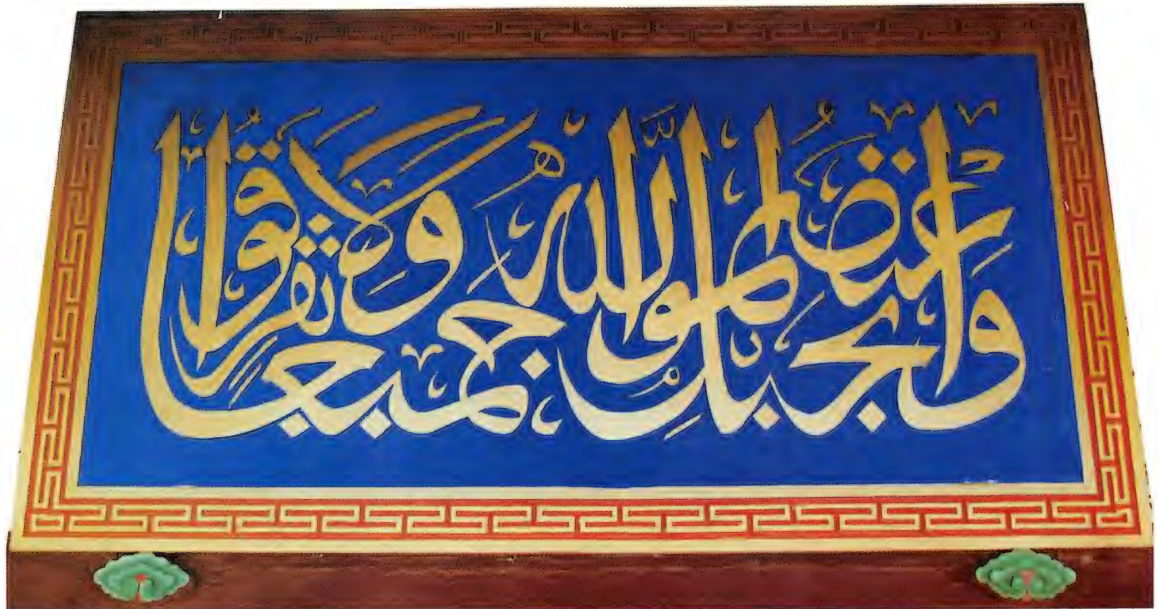 وَاعْتَصِمُوا بِحَبْلِ اللَّهِ جَمِيعًا وَلَا تَفَرَّقُوا